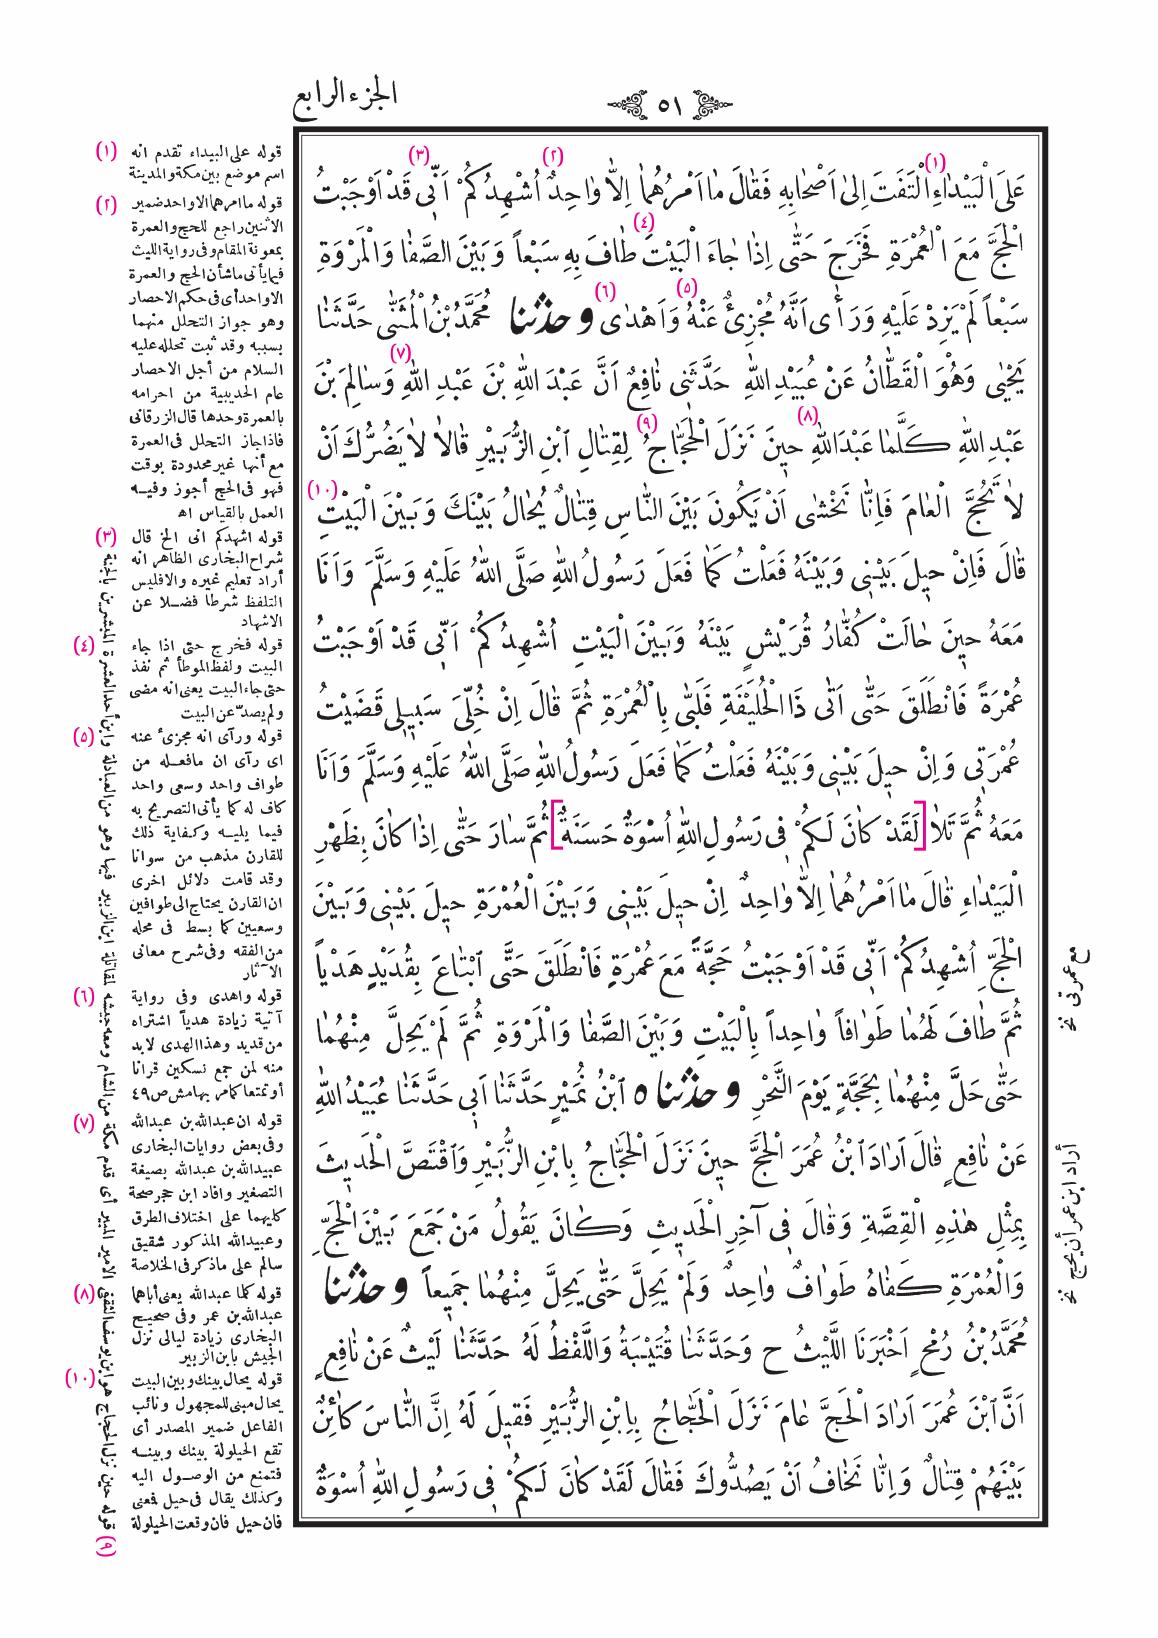 ٥١
الجزء الرابع
عَلَى الْبَيْدَاءِ الْتَفَتَ اِلىٰ اَصْحَابِهِ فَقَالَ مَا اَمْرُهُمَا اِلاّٰ وَاحِدٌ اُشْهِدُكُمْ اَنّى قَدْ اَوْجَبْتُ
الْحَجَّ مَعَ الْعُمْرَةِ فَخَرَجَ حَتّٰى اِذَا جَاءَ الْبَيْتَ طَافَ بِهِ سَبْعاً وَبَيْنَ الصَّفَا وَالْمَرْوَةِ
سَبْعاً لَمْ يَزِدْ عَلَيْهِ وَرَأٰى اَنَّهُ مُجْزِئٌ عَنْهُ وَاَهْدٰى وحدثنا مُحَمَّدُ بْنُ الْمُثَنّٰى حَدَّثَنَا
يَحْيٰى وَهْوَ الْقَطَّانُ عَنْ عُبَيْدِ اللّٰهِ حَدَّثَنى نَافِعٌ اَنَّ عَبْدَ اللّٰهِ بْنَ عَبْدِ اللّٰهِ وَسَالِمَ بْنَ
عَبْدِ اللّٰهِ كَلَّمَا عَبْدَ اللّٰهِ حينَ نَزَلَ الْحَجَّاجُ لِقِتَالِ ابْنِ الزُّبَيْرِ قَالاَ لاٰ يَضُرُّكَ اَنْ
لاٰ تَحُجَّ الْعَامَ فَاِنَّا نَخْشٰى اَنْ يَكُونَ بَيْنَ النَّاسِ قِتَالٌ يُحَالُ بَيْنَكَ وَبَيْنَ الْبَيْتِ
قَالَ فَاِنْ حيلَ بَيْنى وَبَيْنَهُ فَعَلْتُ كَمَا فَعَلَ رَسُولُ اللّٰهِ صَلَّى اللّٰهُ عَلَيْهِ وَسَلَّمَ وَاَنَا
مَعَهُ حينَ حَالَتْ كُفَّارُ قُرَيْشٍ بَيْنَهُ وَبَيْنَ الْبَيْتِ اُشْهِدُكُمْ اَنّى قَدْ اَوْجَبْتُ
عُمْرَةً فَانْطَلَقَ حَتّٰى اَتٰى ذَا الْحُلَيْفَةِ فَلَبّٰى بِالْعُمْرَةِ ثُمَّ قَالَ اِنْ خُلِّىَ سَبيلى قَضَيْتُ
عُمْرَتى وَاِنْ حيلَ بَيْنى وَبَيْنَهُ فَعَلْتُ كَمَا فَعَلَ رَسُولُ اللّٰهِ صَلَّى اللّٰهُ عَلَيْهِ وَسَلَّمَ وَاَنَا
مَعَهُ ثُمَّ تَلاٰ [لَقَدْ كَانَ لَكُمْ فى رَسُولِ اللّٰهِ اُسْوَةٌ حَسَنَةٌ] ثُمَّ سَارَ حَتّٰى اِذَا كَانَ بِظَهْرِ
الْبَيْدَاءِ قَالَ مَا اَمْرُهُمَا اِلاّٰ وَاحِدٌ اِنْ حيلَ بَيْنى وَبَيْنَ الْعُمْرَةِ حيلَ بَيْنى وَبَيْنَ
الْحَجِّ اُشْهِدُكُمْ اَنّى قَدْ اَوْجَبْتُ حَجَّةً مَعَ عُمْرَةٍ فَانْطَلَقَ حَتَّى ابْتَاعَ بِقُدَيْدٍ هَدْياً
ثُمَّ طَافَ لَهُمَا طَوَافاً وَاحِداً بِالْبَيْتِ وَبَيْنَ الصَّفَا وَالْمَرْوَةِ ثُمَّ لَمْ يَحِلَّ مِنْهُمَا
حَتّٰى حَلَّ مِنْهُمَا بِحَجَّةٍ يَوْمَ النَّحْرِ وحدثناه ابْنُ نُمَيْرٍ حَدَّثَنَا اَبى حَدَّثَنَا عُبَيْدُ اللّٰهِ
عَنْ نَافِعٍ قَالَ اَرَادَ ابْنُ عُمَرَ الْحَجَّ حينَ نَزَلَ الْحَجَّاجُ بِابْنِ الزُّبَيْرِ وَاقْتَصَّ الْحَديثَ
بِمِثْلِ هٰذِهِ الْقِصَّةِ وَقَالَ فى آخِرِ الْحَديثِ وَكَانَ يَقُولُ مَنْ جَمَعَ بَيْنَ الْحَجِّ
وَالْعُمْرَةِ كَفَاهُ طَوَافٌ وَاحِدٌ وَلَمْ يَحِلَّ حَتّٰى يَحِلَّ مِنْهُمَا جَميعاً وحدثنا
مُحَمَّدُ بْنُ رُمْحٍ اَخْبَرَنَا اللَّيْثُ ح وَحَدَّثَنَا قُتَيْبَةُ وَاللَّفْظُ لَهُ حَدَّثَنَا لَيْثٌ عَنْ نَافِعٍ
اَنَّ ابْنَ عُمَرَ اَرَادَ الْحَجَّ عَامَ نَزَلَ الْحَجَّاجُ بِابْنِ الزُّبَيْرِ فَقيلَ لَهُ اِنَّ النَّاسَ كَائِنٌ
بَيْنَهُمْ قِتَالٌ وَاِنَّا نَخَافُ اَنْ يَصُدُّوكَ فَقَالَ لَقَدْ كَانَ لَكُمْ فى رَسُولِ اللّٰهِ اُسْوَةٌ
(١) قوله على البيداء تقدم انه
اسم موضع بين مكة والمدينة
(٢) قوله ما امرهما الا واحد ضمير
الاثنين راجع للحج والعمرة
بمعونة المقام وفى رواية الليث
فيما يأتى ماشأن الحج والعمرة
الا واحد أى فى حكم الاحصار
وهو جواز التحلل منهما
بسببه وقد ثبت تحلله عليه
السلام من أجل الاحصار
عام الحديبية من احرامه
بالعمرة وحدها قال الزرقانى
فاذا جاز التحلل فى العمرة
مع أنها غير محدودة بوقت
فهو فى الحج أجوز وفيه
العمل بالقياس اه
(٣) قوله اشهدكم انى الخ قال
شراح البخارى الظاهر انه
أراد تعليم غيره والا فليس
التلفظ شرطا فضلا عن
الاشهاد
(٤) قوله فخرج حتى اذا جاء
البيت ولفظ الموطأ ثم نفذ
حتى جاء البيت يعنى انه مضى
ولم يصدّ عن البيت
(٥) قوله ورآى انه مجزئ عنه
اى رآى ان مافعله من
طواف واحد وسعى واحد
كاف له كما يأتى التصريح به
فيما يليه وكفاية ذلك
للقارن مذهب من سوانا
وقد قامت دلائل اخرى
ان القارن يحتاج الى طوافين
وسعيين كما بسط فى محله
من الفقه وفى شرح معانى
الآثار
(٦) قوله واهدى وفى رواية
آتية زيادة هدياً اشتراه
من قديد وهذا الهدى لابد
منه لمن جمع نسكين قرانا
أو تمتعا كامر بهامش ص٤٩
(٧) قوله ان عبدالله بن عبدالله
وفى بعض روايات البخارى
عبيدالله بن عبدالله بصيغة
التصغير وافاد ابن حجر صحة
كليهما على اختلاف الطرق
وعبيدالله المذكور شقيق
سالم على ماذكر فى الخلاصة
(٨) قوله كلما عبدالله يعنى أباهما
عبدالله بن عمر وفى صحيح
البخارى زيادة ليالى نزل
الجيش بابن الزبير
(١٠) قوله يحال بينك وبين البيت
يحال مبنى للمجهول ونائب
الفاعل ضمير المصدر أى
تقع الحيلولة بينك وبينه
فتمنع من الوصول اليه
وكذلك يقال فى حيل فمعنى
فان حيل فان وقعت الحيلولة
(٩) قوله حين نزل الحجاج هو ابن يوسف الثقفى الامير المبير أى قدم مكة من الشام ومعه جيشه لمقاتلة ابن الزبير فيها وهو من العبادلة وابن أحد العشرة المبشرين بالجنة
مع عمرتى نخ
أراد ابن عمر أن يحج نخ